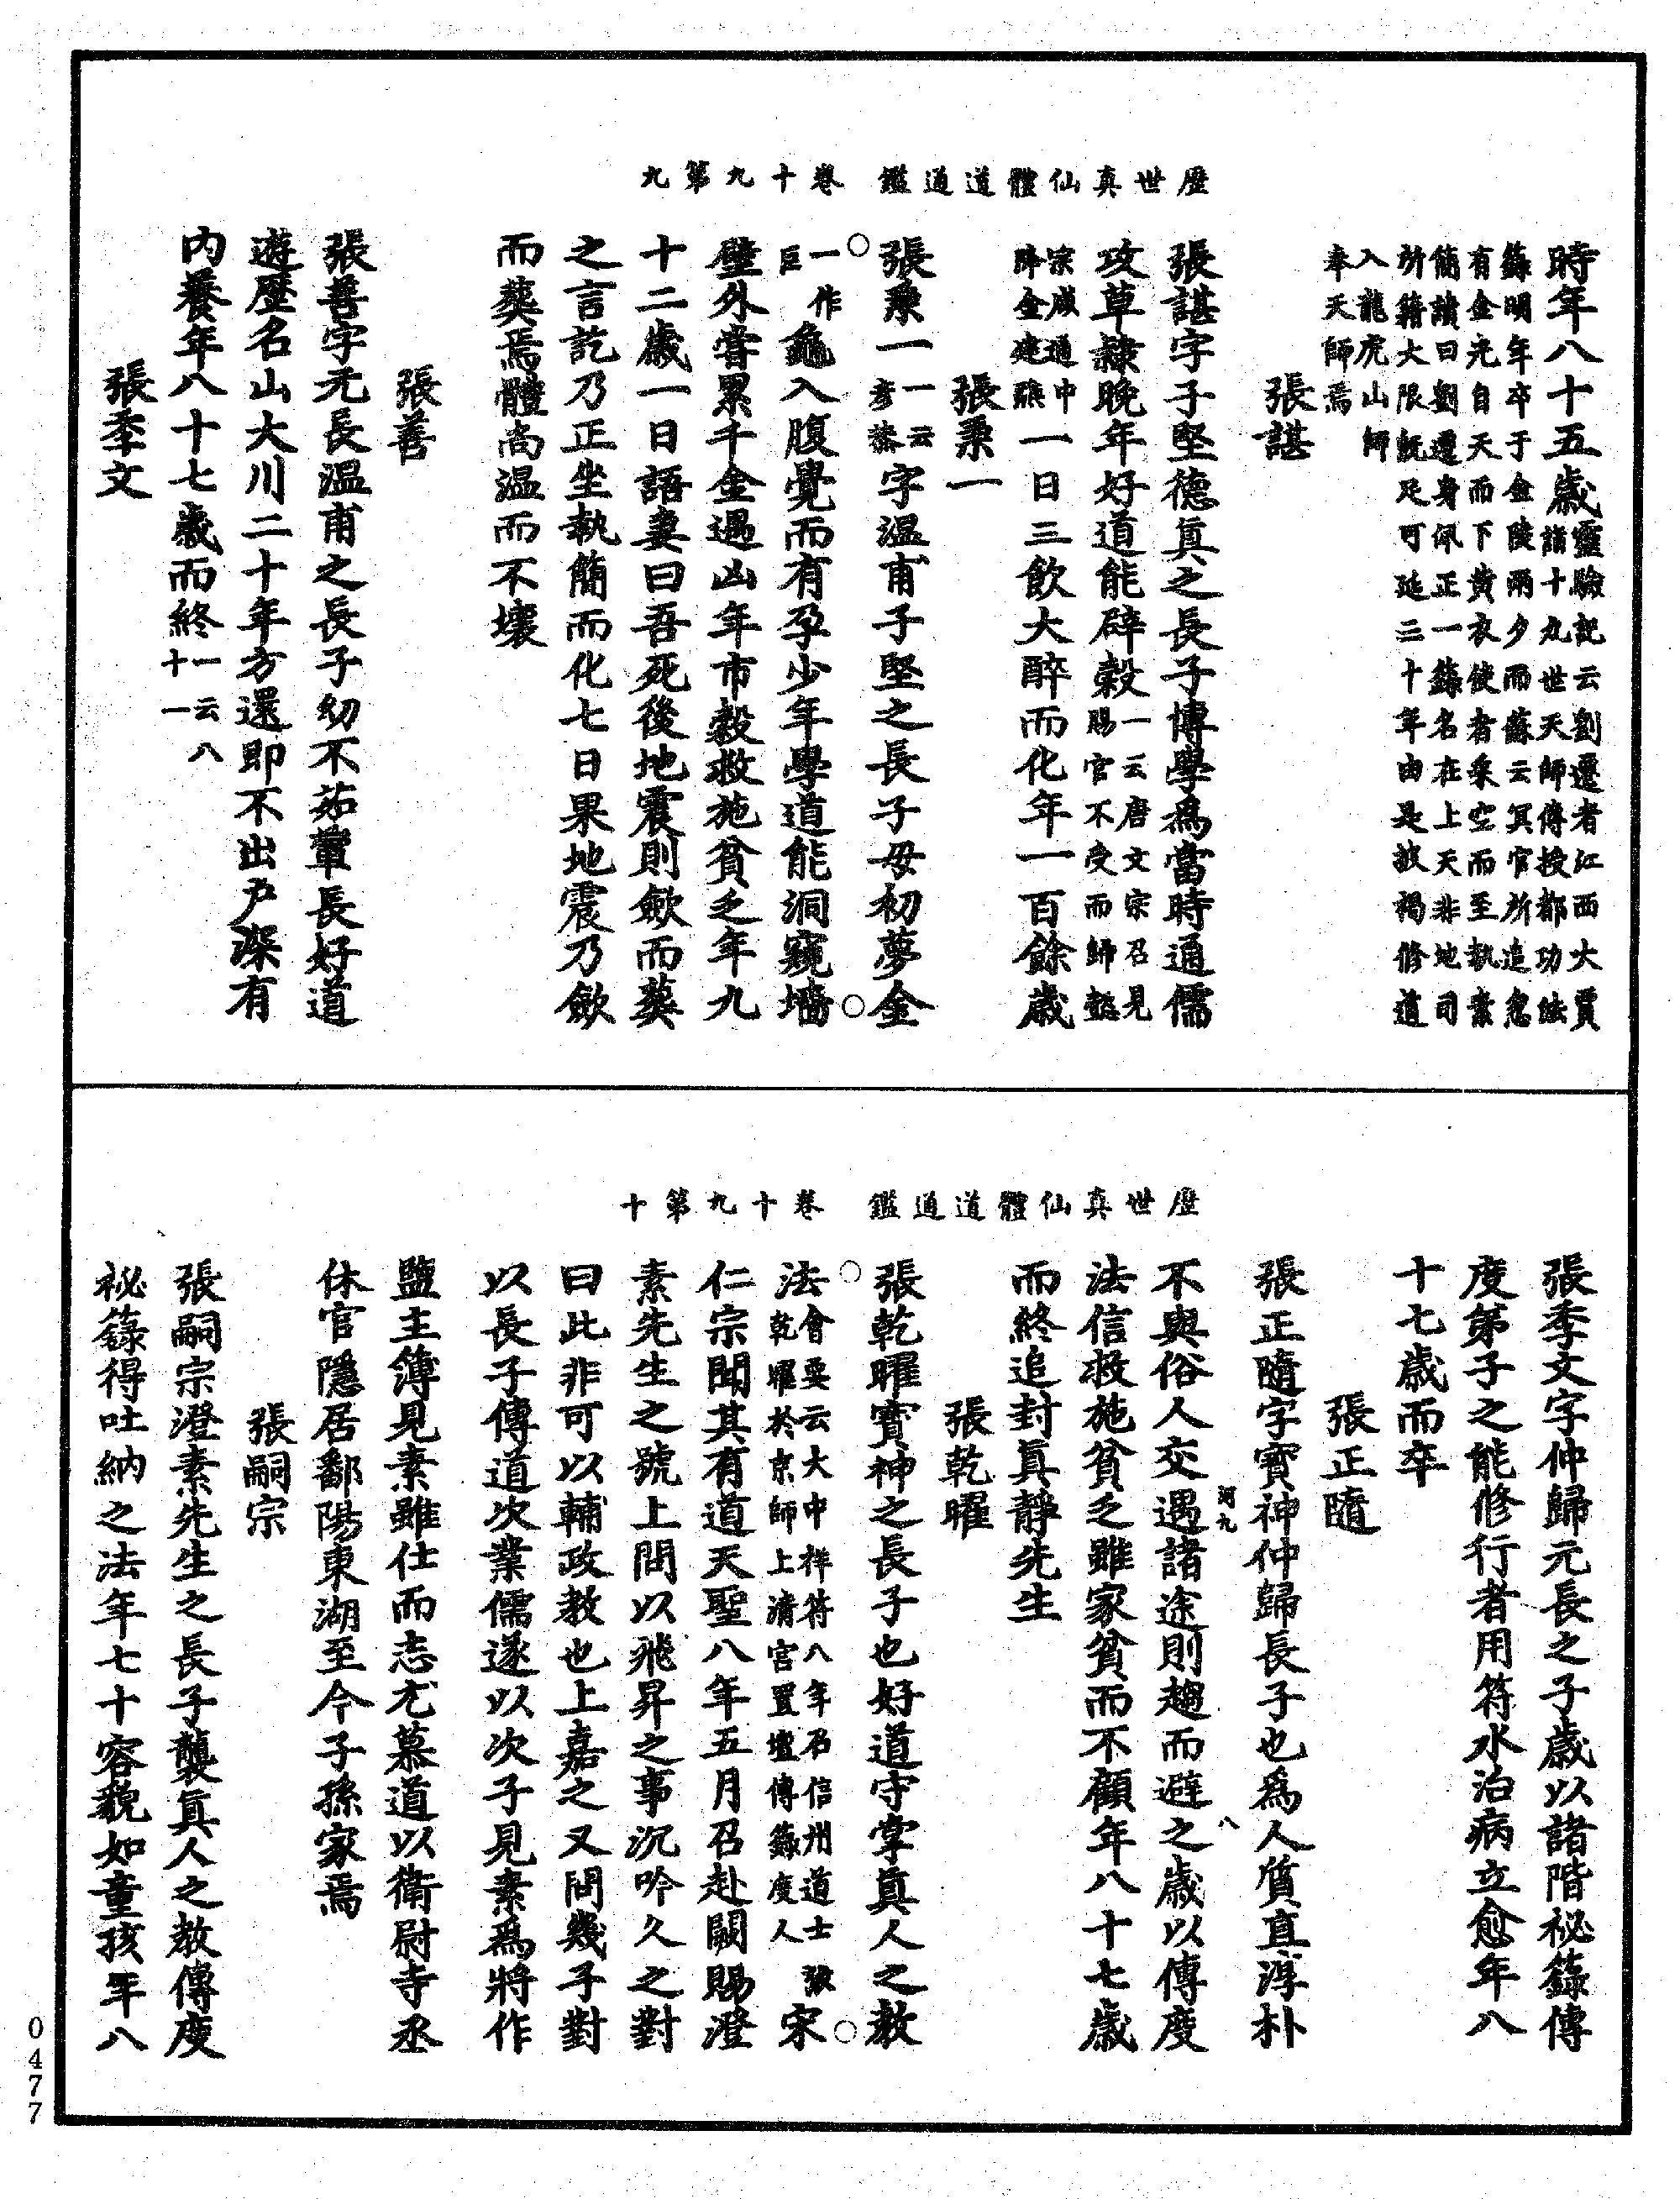 歷世真仙體道通鑑　卷十九第九
時年八十五歲靈驗記云劉遷者江西大賈諸十九世天師傳授都功法
籙明年卒于金陵兩夕而蘇云冥官所追忽
有金光自天而下黃衣使者乘空而至執素
簡讀曰劉遷身佩正一籙名在上天非地司
所籍大限既足可延三十年由是披褐修道
入龍虎山師
奉天師焉
張諶
張諶字子堅德眞之長子博學爲當時通儒
攻草隸晚年好道能辟穀一云唐文宗召見賜官不受而歸懿
宗咸通中降金建醮一日三飲大醉而化年一百餘歲
張秉一
張秉一一云彥字溫甫子堅之長子母初夢金
一作巨龜入腹覺而有孕少年學道能洞窺墻
壁外嘗累千金遇凶年市穀救施貧乏年九
十二歲一日語妻曰吾死後地震則歛而葬
之言訖乃正坐執簡而化七日果地震乃歛
而葬焉體尚溫而不壞
張善
張善字元長溫甫之長子幼不茹葷長好道
遊歷名山大川二十年方還即不出戶深有
內養年八十七歲而終一云八十一
張季文
歷世真仙體道通鑑　卷十九第十
張季文字仲歸元長之子歲以諸階祕籙傳
度弟子之能修行者用符水治病立愈年八
十七歲而卒
張正隨
張正隨字寶神仲歸長子也爲人質直淳朴
河九　八
不與俗人交遇諸途則趨而避之歲以傳度
法信救施貧乏雖家貧而不顧年八十七歲
而終追封眞靜先生
張乾曜
張乾曜寶神之長子也好道守掌眞人之教
法會要云大中祥符八年召信州道士張乾曜於京師上清宮置壇傳籙度人宋
仁宗聞其有道天聖八年五月召赴闕賜澄
素先生之號上問以飛昇之事沉吟久之對
曰此非可以輔政教也上嘉之又問幾子對
以長子傳道次業儒遂以次子見素爲將作
監主簿見素雖仕而志尤慕道以衛尉寺丞
休官隱居鄱陽東湖至今子孫家焉
張嗣宗
張嗣宗澄素先生之長子襲眞人之教傳度
祕籙得吐納之法年七十容貌如童孩年八
0477